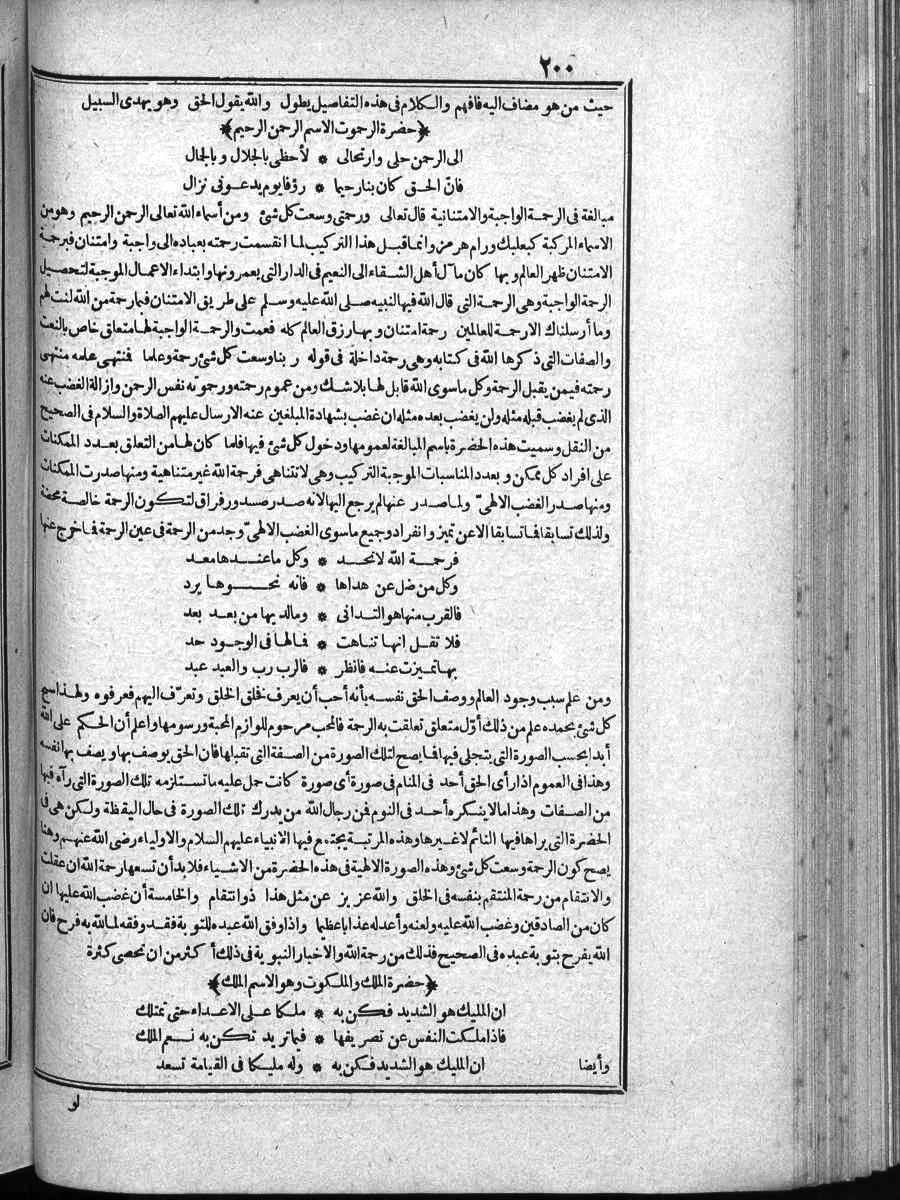 ٢٠٠
حيث من هو مضاف اليه فافهم والكلام فى هذه التفاصيل يطول والله يقول الحق وهو يهدى السبيل
﴿حضرة الرحموت الاسم الرحمن الرحيم﴾
الى الرحمن حلى وارتحالى * لأحظى بالجلال وبالجال
فان الحق كان بنا رحيما * رؤفا يوم يدعونى نزال
مبالغة فى الرحمة الواجبة والامتنانية قال تعالى ورحمتى وسعت كل شئ ومن أسماء الله تعالى الرحمن الرحيم وهو من
الاسماء المركبة كبعلبك ورام هرمز وانما قبل هذا التركيب لما انقسمت رحمته بعباده الى واجبة وامتنان فبرحمة
الامتنان ظهر العالم وبها كان مآل أهل الشقاء الى النعيم فى الدار التى يعمرونها وابتداء الاعمال الموجبة لتحصيل
الرحمة الواجبة وهى الرحمة التى قال الله فيها لنبيه صلى الله عليه وسلم على طريق الامتنان فبما رحمة من الله لنت لهم
وما أرسلناك الا رحمة للعالمين رحمة امتنان وبها رزق العالم كله فعمت والرحمة الواجبة لها متعلق خاص بالنعت
والصفات التى ذكرها الله فى كتابه وهى رحمة داخلة فى قوله ربنا وسعت كل شئ رحمة وعلما فنتهى علمه منتهى
رحمته فيمن يقبل الرحمة وكل ما سوى الله قابل لها بلا شك ومن عموم رحمته ورحموته نفس الرحمن وازالة الغضب عنه
الذى لم يغضب قبله مثله ولن يغضب بعده مثله ان غضب بشهادة المبلغين عنه الارسال عليهم الصلاة والسلام فى الصحيح
من النقل وسميت هذه الحضرة باسم المبالغة لعمومها ودخول كل شئ فيها فلما كان لها من التعلق بعدد الممكنات
على افراد كل ممكن وبعدد المناسبات الموجبة التركيب وهى لا تتناهى فرحمة الله غير متناهية ومنها صدرت الممكنات
ومنها صدر الغضب الالهى ولما صدر عنها لم يرجع اليها لانه صدر صدور فراق لتكون الرحمة خالصة محضة
ولذلك تسابقا فما تسابقا الا عن تميز وانفراد وجميع ما سوى الغضب الالهى وجد من الرحمة فى عين الرحمة فما خرج عنها
فرحمة الله لا تحد * وكل ما عندها معد
وكل من ضل عن هداها * فانه نحوها يرد
فالقرب منها هو التدانى * وما لديها من بعد بعد
فلا تقل انها تناهت * فمالها فى الوجود حد
بها تميزت عنه فانظر * فالرب رب والعبد عبد
ومن علم سبب وجود العالم ووصف الحق نفسه بأنه أحب أن يعرف فخلق الخلق وتعرّف اليهم فعرفوه ولهذا سبح
كل شئ بحمده علم من ذلك أوّل متعلق تعلقت به الرحمة فالمحب مرحوم للوازم المحبة ورسومها واعلم أن الحكم على الله
أبدا بحسب الصورة التى يتجلى فيها فما يصح لتلك الصورة من الصفة التى تقبلها فان الحق يوصف بها ويصف بها نفسه
وهذا فى العموم اذا رأى الحق أحد فى المنام فى صورة أى صورة كانت حمل عليه ما تستلزمه تلك الصورة التى رآه فيها
من الصفات وهذا ما لا ينكره أحد فى النوم فمن رجال الله من يدرك تلك الصورة فى حال اليقظة ولكن هى فى
الحضرة التى يراها فيها النائم لا غيرها وهذه المرتبة يجتمع فيها الانبياء عليهم السلام والاولياء رضى الله عنهم وهنا
يصح كون الرحمة وسعت كل شئ وهذه الصورة الالهية فى هذه الحضرة من الاشياء فلا بد أن تسعها رحمة الله ان عقلت
والانتقام من رحمة المنتقم بنفسه فى الخلق والله عزيز عن مثل هذا ذو انتقام والخامسة أن غضب الله عليها ان
كان من الصادقين وغضب الله عليه ولعنه وأعدله عذابا عظيما واذا وفق الله عبده للتوبة فقد وفقه لما لله به فرح فان
الله يفرح بتوبة عبده فى الصحيح فذلك من رحمة الله والاخبار النبوية فى ذلك أكثر من ان تحصى كثرة
﴿حضرة الملك والملكوت وهو الاسم الملك﴾
ان المليك هو الشديد فكن به * ملكا على الاعداء حتى تمتلك
فاذا ملكت النفس عن تصريفها * فيما تريد تكن به نعم الملك
وأيضا ان المليك هو الشديد فكن به * وله مليكا فى القيامة تسعد
لو